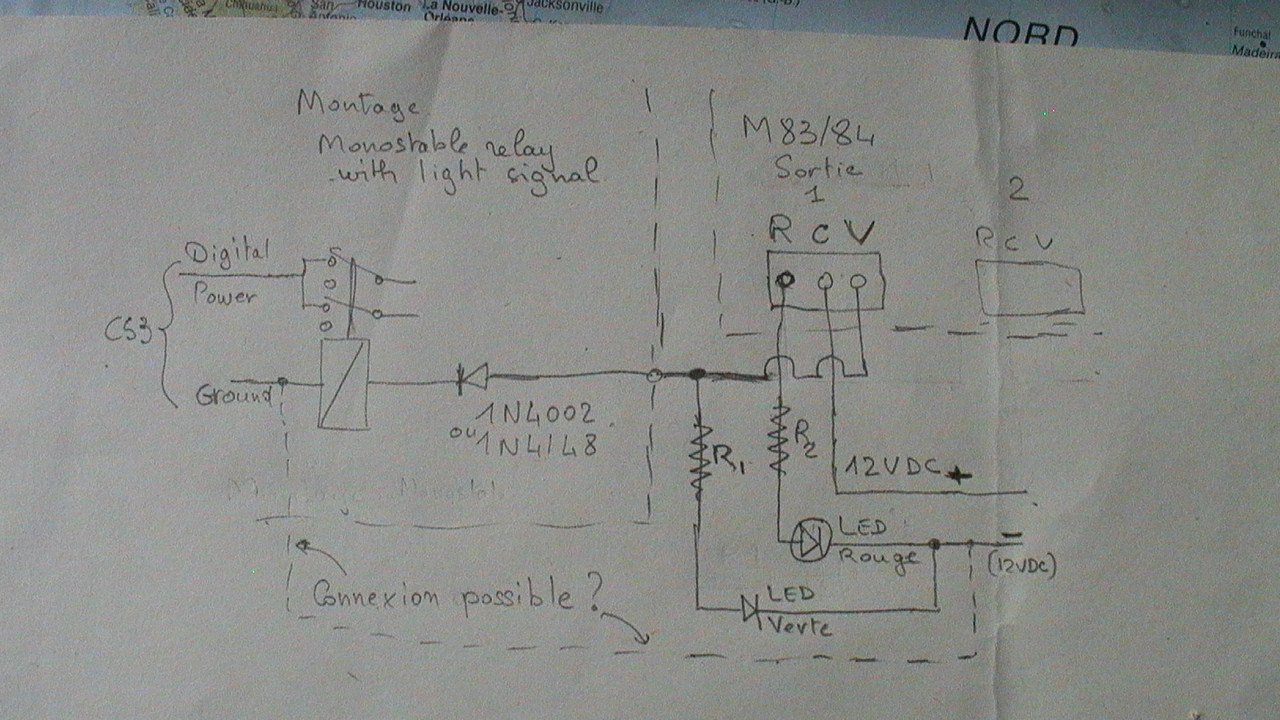 San
Houston
La Nouvelle-
Orléans
Jacksonville
NORD
Funchal
Madeira
Montage
Monostable relay
with light signal
M83/84
Sortie
1
2
R C V
R C V
Digital
Power
CS3
Ground
1N4002
ou 1N4148
R1
R2
12VDC +
LED
Rouge
-
(12VDC)
LED
Verte
Connexion possible ?